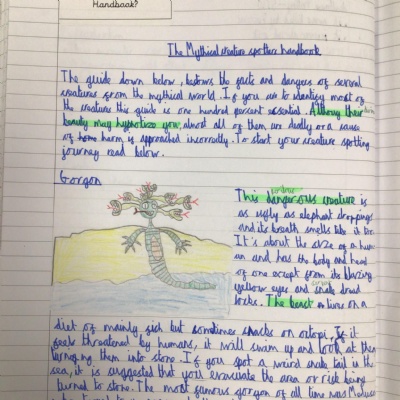 Handbook?
The Mythical creature spotters handbook
The guide down below, bestows the facts and dangers of several
creatures from the mythical world. If you are to identify most of
the creatures this guide is one hundred percent essential. Althoug their
beauty may hypnotize you, almost all of them are deadly or a cause
of harm is approached incorrectly. To start your creature spotting
journey read below.
Gorgon
This dangerous creature is
as ugly as elephant droppings
and its breath smells like it too.
It's about the size of a
and has the body and head
of one except from its blazing
yellow eyes and snake dread
locks. The beast lives on a
diet of mainly fish but sometimes snacks on octopi. If it
feels threatened by humans, it will swim up and look at them
turning them into stone. If you spot a weird snake tail in the
sea, it is suggested that you evacuate the area or risk being
turned to stone. The most famous gorgon of all time was Medusa